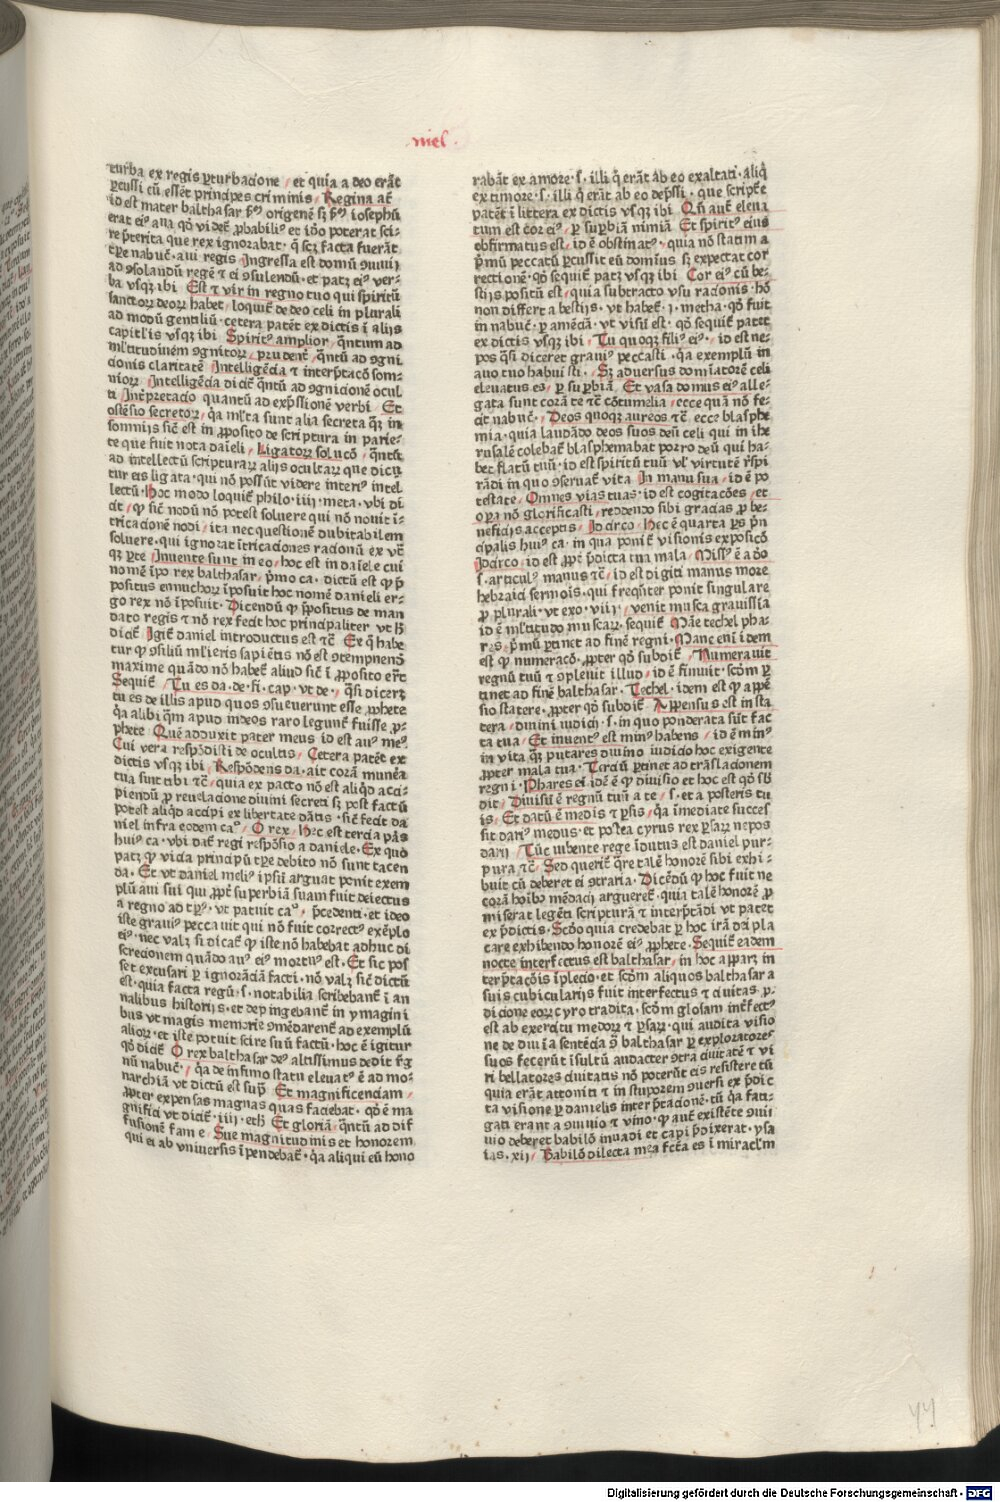 niel·
turba ex regis ꝑturbacione / et quia a deo erāt
ꝑcussi cū essēt principes criminis / Regina at̄
id est mater balthasar ẜm origenē sꝫ ẜm iosephū
erat eiꝰ aua qͦ videt̄ ꝓbabiliꝰ et iđo poterat sci-
re p̄terita que rex ignorabat · q̄ scꝫ facta fuerāt
tꝑe nabuc̄ · aui regis Ingressa est domū ꝯuiuij
ad ꝯsolandū regē ⁊ ei ꝯsulendū · et patꝫ eiꝰ ver-
ba vsqꝫ ibi Est ⁊ vir in regno tuo qui spiritū
sanctoꝝ deoꝝ habet / loquit̄ de deo celi in plurali
ad modū gentiliū · cetera patēt ex dictis ī alijs
capitlis vsqꝫ ibi Spiritꝰ amplior / q̄ntum ad
ml̄titudinēm ꝯgnitoꝝ / prudent̄ / q̄ntū ad ꝯgni
cionis claritatē Intelligēcia ⁊ interp̄tacō som-
nioꝝ / Intelligēcia dicit̄ q̄ntū ad ꝯgnicionē ocul
ti Int̄pretacio quantū ad exp̄ssionē verbi Et
ostēsio secretoꝝ / q̄a ml̄ta sunt alia secreta qꝫ in
somnijs sic̄ est in ꝓposito de scriptura in parie-
te que fuit nota daieli / Ligatoꝝ solucō / q̄ntū
ad intellectū scripturaꝝ alijs occultaꝝ que dicū
tur eis ligata · qui nō possūt videre interiꝰ intel
lectū · Hoc modo loquit̄ philo · iij · meta · vbi di
cit / ꝙ sic̄ nodū nō potest soluere qui nō nouit ī-
tricacionē nodi / ita nec questionē dubitabilem
soluere · qui ignorat ītricaciones racionū ex vt̄
qꝫ ꝑte / Inuente sunt in eo / hoc est in daiele cui
nomē īpo rex balthasar / p̄mo ca · dictū est ꝙ p̄
positus eunuchoꝝ īposuit hoc nomē danieli er-
go rex nō īposuit · Dicendū ꝙ p̄positus de man
dato regis ⁊ nō rex fecit hoc principaliter vt ħ
dicit̄ Igit̄ daniel introductus est ⁊c̄ Ex q̄ habe
tur ꝙ ꝯsiliū ml̄ieris sapiētis nō est ꝯtempnenō
maxime quādo nō habet̄ aliud sic̄ ī ꝓposito er̄t
Sequit̄ Tu es da · de · fi · cap · vt de · / q̄si dicerꝫ
tu es de illis apud quos ꝯsueuerunt esse ꝓphete
q̄a alibi q̄m apud iudeos raro legunt̄ fuisse ꝓ-
phete Quē adduxit pater meus id est auꝰ meꝰ
Cui vera respōdisti de occultis / Cetera patēt ex
dictis vsqꝫ ibi / Respōdens da · ait corā munēa
tua sunt tibi ⁊c̄ / quia ex pacto nō est aliqđ acci-
piendū ꝓ reuelacione diuini secreti sꝫ post factū
potest aliqđ accipi ex libertate dātis · sic̄ fecit da
niel infra eodem caͦ / O rex / Hec est tercia pās
huiꝰ ca · vbi dat̄ regi respōsio a daniele · Ex quo
patꝫ ꝙ vicia principū tꝑe debito nō sunt tacen
da · Et vt daniel meliꝰ ipsū arguat ponit exem
plū aui sui qui ꝓpt̄ suꝑbiā suam fuit deiectus
a regno ad tꝑꝰ · vt patuit caͦ · p̄cedenti · et ideo
iste grauiꝰ peccauit qui nō fuit correctꝰ exēplo
eiꝰ · nec valꝫ si dicat̄ ꝙ iste nō habebat adhuc di
screcionem quādo auꝰ ei mortuꝰ est · Et sic pos
set excusari ꝑ ignorāciā facti · nō valꝫ sic̄ dictū
est · quia facta regū · s · notabilia scribebant̄ ī an
nalibus historijs · et depingebant̄ in ymagini
bus vt magis memorie ꝯmēdarent̄ ad exemplū
alioꝝ · et iste potuit scire suū factū · hoc ē igitur
qđ dicit̄ O rex balthasar deꝰ altissimus dedit r̄g
nū nabuc̄ · / q̄a de infimo statu eleuatꝰ ē ad mo-
narchiā vt dictū est sup̄ Et magnificenciam /
ꝓpter expensas magnas quas faciebat · qđ ē ma
gnifici vt dicit̄ · iiij · eth̄ Et gloriā / q̄ntū ad dif
fusionē fame Sue magnitudinis et honorem
qui ei ab vniuersis īpendebat̄ · q̄a aliqui eū hono
rabāt ex amore · s · illi q̄ erāt ab eo exaltati · aliq̄
ex timore · s · illi q̄ erāt ab eo dep̄ssi · que scripte
patēt ī littera ex dictis vsqꝫ ibi Qn̄ aut̄ eleua
tum est cor eiꝰ / ꝑ suꝑbiā nimiā Et spiritꝰ eius
obfirmatus est / id ē obstinatꝰ · quia nō statim a
p̄mū peccatū ꝑcussit eū domīus sꝫ expectat cor
rectionē · qđ sequit̄ patꝫ vsqꝫ ibi Cor eiꝰ cū be-
stijs positū est / quia subtracto vsu racionis · hō
non differt a bestijs · vt habet̄ · j · metha · qđ fuit
in nabuc̄ · ꝑ amēciā · vt visū est · qđ sequit̄ patet
ex dictis vsqꝫ ibi / Tu quoqꝫ filiꝰ eiꝰ · / id est ne-
pos q̄si diceret grauiꝰ peccasti · q̄a exemplū in
auo tuo habuisti · Sꝫ aduersus domīatorē celi
eleuatus es / ꝑ suꝑbiā · Et vasa domus eiꝰ alle-
gata sunt corā te ⁊c̄ cōtumelia / ecce quā nō fe-
cit nabuc̄ · Deos quoqꝫ aureos ⁊c̄ ecce blasphe
mia · quia laudādo deos suos deū celi qui in ihe
rusalē colebat̄ blasphemabat porro deū qui ha-
bet flatū tuū · id est spiritū tuū vl̄ virtutē r̄spi
rādi in quo ꝯseruat̄ vita In manu sua / id ē po
testate · Omnes vias tuas · id est cogitacōes / et
oꝑa nō glorificasti / reddendo sibi gracias ꝓ be-
neficijs acceptis / Idcirco · hec ē quarta pꝰs p̄n
cipalis huiꝰ ca · in qua ponit̄ visionis exposicō
Idcirco / id est ꝓpt̄ p̄dicta tua mala / Missꝰ ē a dō
s · articulꝰ manus ⁊c̄ / id est digiti manus more
hebraici sermōis · qui freq̄nter ponit singulare
ꝓ plurali · vt exo · viij · / venit musca grauissīa
id ē ml̄titudo muscaꝝ · sequit̄ Māe techel pha-
res / p̄mū ꝑtinet ad finē regni · Mane em̄ īdem
est ꝙ numeracō · ꝓpter qđ subdit̄ / Numerauit
regnū tuū ⁊ ꝯpleuit illud / id ē finiuit · scđm ꝑ
tinet ad finē balthasar · Techel · idem est ꝙ appē
sio statere · ꝓpter qđ subdit̄ Appensus est in sta
tera / diuini iudicij · s · in quo ponderata sūt fac
ta tua / Et inuentꝰ est minꝰ habens / id ē minꝰ
in vita qꝫ putares diuino iudicio hoc exigente
ꝓpter mala tua · Terciū ꝑtinet ad trāslacionem
regni · Phares ei idē ē ꝙ diuisio et hoc est qđ sb̄
dit / Diuisū ē regnū tuū a te / s · et a posteris tu
is · Et datū ē medis ⁊ ꝑsis / q̄a īmediate succes
sit dariꝰ medus · et postea cyrus rex ꝑsaꝝ nepos
darij / Tūc iubente rege īdutus est daniel pur-
pura ⁊c̄ · Sed querit̄ q̄re talē honorē sibi exhi-
buit cū deberet ei ꝯtraria · Dicēdū ꝙ hoc fuit ne
corā hoībꝰ mēdacij arguereⲧ̄ · quia talē honorē ꝓ
miserat legēti scripturā ⁊ interp̄tādi vt patet
ex p̄dictis · Scđo quia credebat ꝑ hoc irā dei pla
care exhibendo honorē eiꝰ ꝓphete · Sequit̄ eadem
nocte interfectus est balthasar / in hoc apparꝫ in
terp̄tacōis īplecio · et scđm aliquos balthasar a
suis cubicularijs fuit interfectus ⁊ ciuitas ꝑ-
dicione eoꝝ cyro tradita · scđm glosam int̄fectꝰ
est ab exercitu medoꝝ ⁊ ꝑsaꝝ · qui audita visio
ne de diuīa sentēcia ꝯ̄ balthasar ꝑ exploratores
suos fecerūt īsultū audacter ꝯtra ciuitatē ⁊ vi
ri bellatores ciuitatis nō poterūt eis resistere tū
quia erāt attoniti ⁊ in stuporem ꝯuersi ex p̄dic
ta visione ꝑ danielis interp̄tacionē · tū q̄a fati-
gati erant a ꝯuiuio ⁊ vino · ꝙ aut̄ existēte ꝯuiu
uio deberet babilō inuadi et capi p̄dixerat · ysa
ias · xij / Babilō dilecta mea fc̄ta es ī miracl̄m
Digitalisierung gefördert durch die Deutsche Forschungsgemeinschaft - DFG